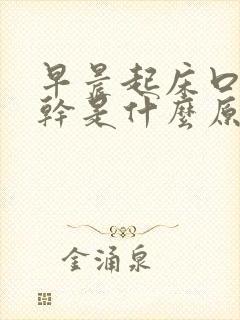 早晨起床口
幹是什麼原
金涌泉